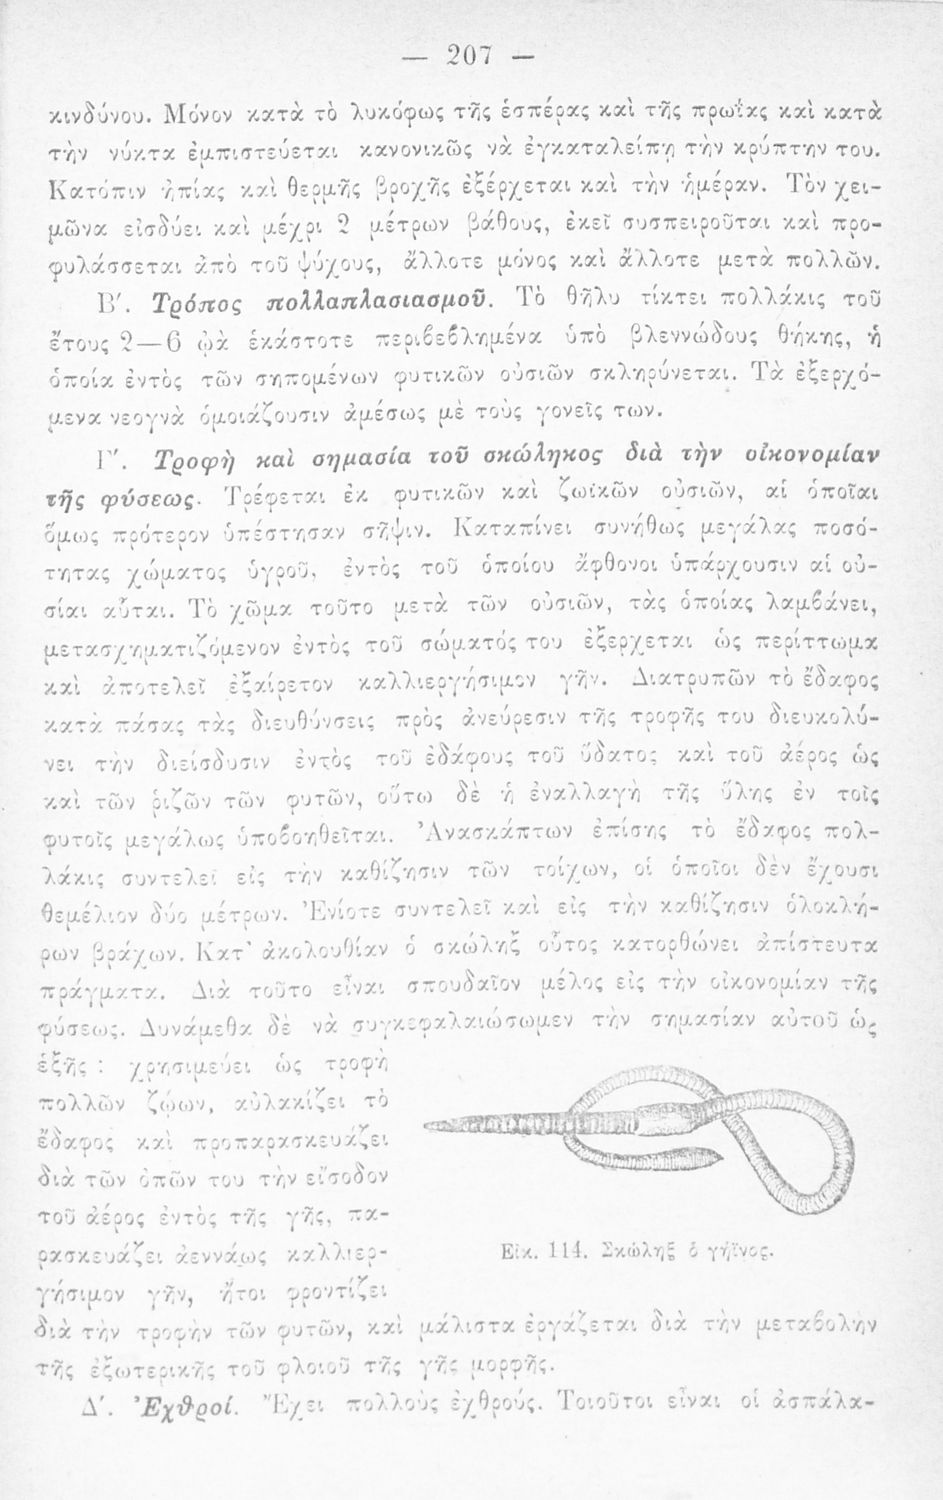 — 207 —
κινδύνου. Μόνον κατὰ τὸ λυκόφως τῆς ἑσπέρας καὶ τῆς πρωΐας καὶ κατὰ
τὴν νύκτα ἐμπιστεύεται κανονικῶς νὰ ἐγκαταλείπῃ τὴν κρύπτην του.
Κατόπιν ἠπίας καὶ θερμῆς βροχῆς ἐξέρχεται καὶ τὴν ἡμέραν. Τὸν χει-
μῶνα εἰσδύει καὶ μέχρι 2 μέτρων βάθους, ἐκεῖ συσπειροῦται καὶ προ-
φυλάσσεται ἀπὸ τοῦ ψύχους, ἄλλοτε μόνος καὶ ἄλλοτε μετὰ πολλῶν.
Β΄. Τρόπος πολλαπλασιασμοῦ. Τὸ θῆλυ τίκτει πολλάκις τοῦ
ἔτους 2—6 ᾠὰ ἑκάστοτε περιβεβλημένα ὑπὸ βλεννώδους θήκης, ἡ
ὁποία ἐντὸς τῶν σηπομένων φυτικῶν οὐσιῶν σκληρύνεται. Τὰ ἐξερχό-
μενα νεογνὰ ὁμοιάζουσιν ἀμέσως μὲ τοὺς γονεῖς των.
Γ΄. Τροφὴ καὶ σημασία τοῦ σκώληκος διὰ τὴν οἰκονομίαν
τῆς φύσεως. Τρέφεται ἐκ φυτικῶν καὶ ζωϊκῶν οὐσιῶν, αἱ ὁποῖαι
ὅμως πρότερον ὑπέστησαν σῆψιν. Καταπίνει συνήθως μεγάλας ποσό-
τητας χώματος ὑγροῦ, ἐντὸς τοῦ ὁποίου ἄφθονοι ὑπάρχουσιν αἱ οὐ-
σίαι αὗται. Τὸ χῶμα τοῦτο μετὰ τῶν οὐσιῶν, τὰς ὁποίας λαμβάνει,
μετασχηματιζόμενον ἐντὸς τοῦ σώματός του ἐξερχεται ὡς περίττωμα
καὶ ἀποτελεῖ ἐξαίρετον καλλιεργήσιμον γῆν. Διατρυπῶν τὸ ἔδαφος
κατὰ πάσας τὰς διευθύνσεις πρὸς ἀνεύρεσιν τῆς τροφῆς του διευκολύ-
νει τὴν διείσδυσιν ἐντὸς τοῦ ἐδάφους τοῦ ὕδατος καὶ τοῦ ἀέρος ὡς
καὶ τῶν ῥιζῶν τῶν φυτῶν, οὕτω δὲ ἡ ἐναλλαγὴ τῆς ὕλης ἐν τοῖς
φυτοῖς μεγάλως ὑποβοηθεῖται. Ἀνασκάπτων ἐπίσης τὸ ἔδαφος πολ-
λάκις συντελεῖ εἰς τὴν καθίζησιν τῶν τοίχων, οἱ ὁποῖοι δὲν ἔχουσι
θεμέλιον δύο μέτρων. Ἐνίοτε συντελεῖ καὶ εἰς τὴν καθίζησιν ὁλοκλή-
ρων βράχων. Κατ' ἀκολουθίαν ὁ σκώληξ οὗτος κατορθώνει ἀπίστευτα
πράγματα. Διὰ τοῦτο εἶναι σπουδαῖον μέλος εἰς τὴν οἰκονομίαν τῆς
φύσεως. Δυνάμεθα δὲ νὰ συγκεφαλαιώσωμεν τὴν σημασίαν αὐτοῦ ὡς
ἑξῆς : χρησιμεύει ὡς τροφὴ
πολλῶν ζῴων, αὐλακίζει τὸ
ἔδαφος καὶ προπαρασκευάζει
διὰ τῶν ὀπῶν του τὴν εἴσοδον
τοῦ ἀέρος ἐντὸς τῆς γῆς, πα-
ρασκευάζει ἀεννάως καλλιερ-
γήσιμον γῆν, ἤτοι φροντίζει
Εἰκ. 114. Σκώληξ ὁ γήϊνος.
διὰ τὴν τροφὴν τῶν φυτῶν, καὶ μάλιστα ἐργάζεται διὰ τὴν μεταβολὴν
τῆς ἐξωτερικῆς τοῦ φλοιοῦ τῆς γῆς μορφῆς.
Δ΄. Ἐχθροί. Ἔχει πολλοὺς ἐχθρούς. Τοιοῦτοι εἶναι οἱ ἀσπάλα-